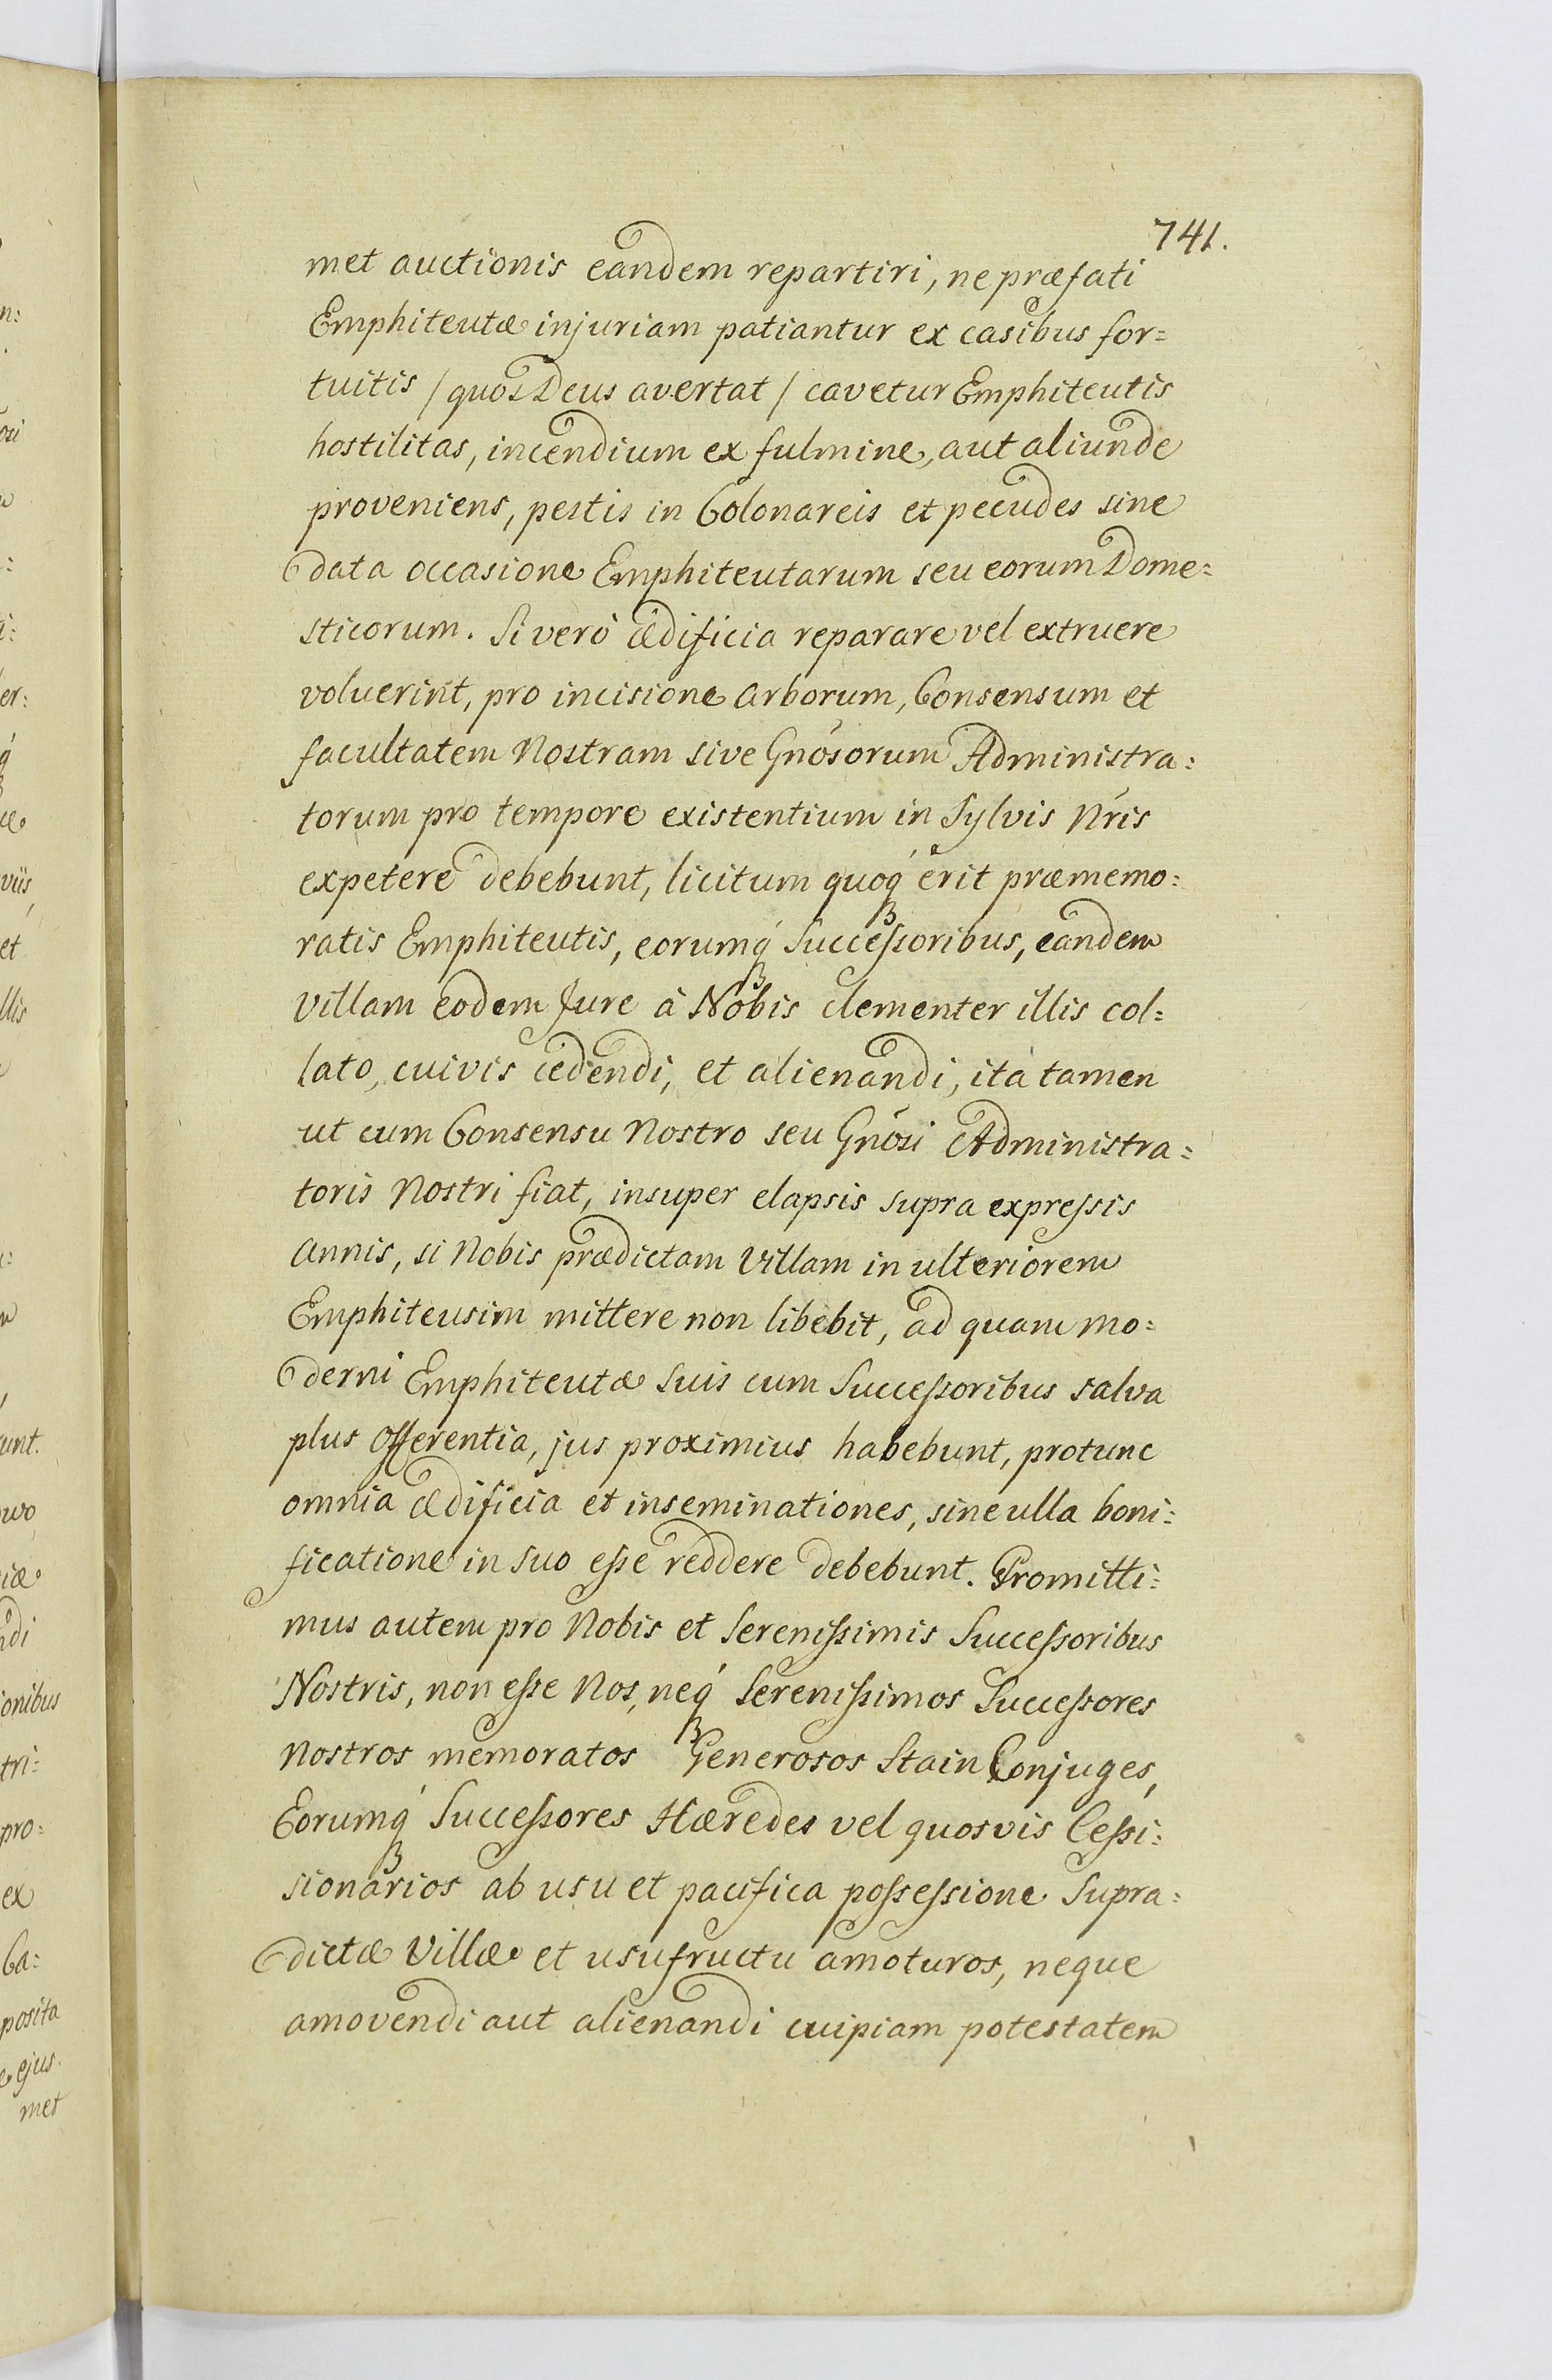 741.
met auctionis eandem repartiri, ne præfati
Emphiteutæ injuriam patiantur ex casibus for=
tuitis / quos Deus avertat / cavetur Emphiteutis
hostilitas, incendium ex fulmine, aut aliunde
proveniens, pestis in Colonareis et pecudes sine
data occasione Emphiteutarum seu eorum Dome=
sticorum. Si verò ædificia reparare vel extruere
voluerint, pro incisione arborum, Consensum et
facultatem Nostram sive Gnósorum Administra=
torum pro tempore existentium in Sylvis Nris
expetere debebunt, licitum quoq́ erit præmemo=
ratis Emphiteutis, eorumq́ Successoribus, eandem
Villam eodem Jure à Nobis clementer illis col=
lato, cuivis cedendi, et alienandi, ità tamen
ut cum Consensu Nostro seu Gnósi Administra=
toris Nostri fiat, insuper elapsis supra expressis
Annis, si Nobis prædictam Villam in ulteriorem
Emphiteusim mittere non libebit, ad quam mo=
derni Emphiteutæ Suis cum Successoribus salva
plus Offerentia, jus proximius habebunt, protunc
omnia ædificia et inseminationes, sine ulla boni=
ficatione in suo esse reddere debebunt. Promitti=
mus autem pro Nobis et Serenissimis Successoribus
Nostris, non esse Nos, neq́ Serenissimos Successores
Nostros memoratos Generosos Stain Conjuges,
Eorumq́ Successores Hæredes vel quosvis Cessi=
sionarios ab usu et pacifica possessione Supra=
dictæ Villæ et usufructu amoturos, neque
amovendi aut alienandi cuipiam potestatem
n:
er:
viis,
et
llis
unt.
iæ
ndi
ionibus
tri=
pro=
ex
Ca=
posita
ejus.
met